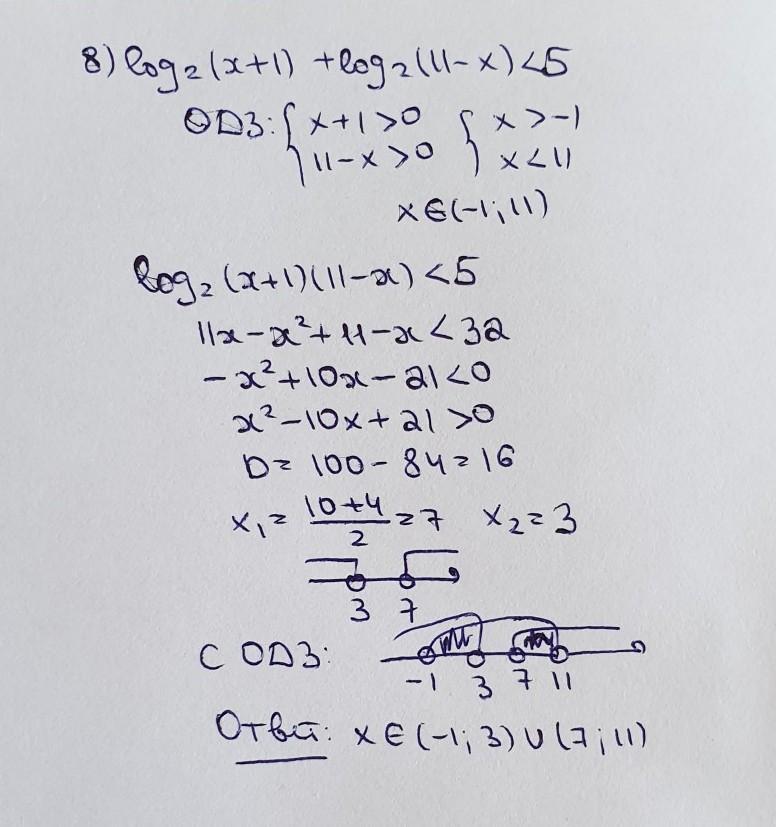 8) log₂(x+1) + log₂(11-x) < 5
ОДЗ: { x+1>0 { x>-1
11-x>0 x<11
x∈(-1; 11)
log₂(x+1)(11-x) < 5
11x-x²+11-x < 32
-x²+10x-21<0
x²-10x+21>0
D= 100-84=16
x₁ = (10+4)/2 = 7 x₂ = 3
3 7
С ОДЗ:
-1 3 7 11
Ответ: x∈(-1; 3)∪(7; 11)